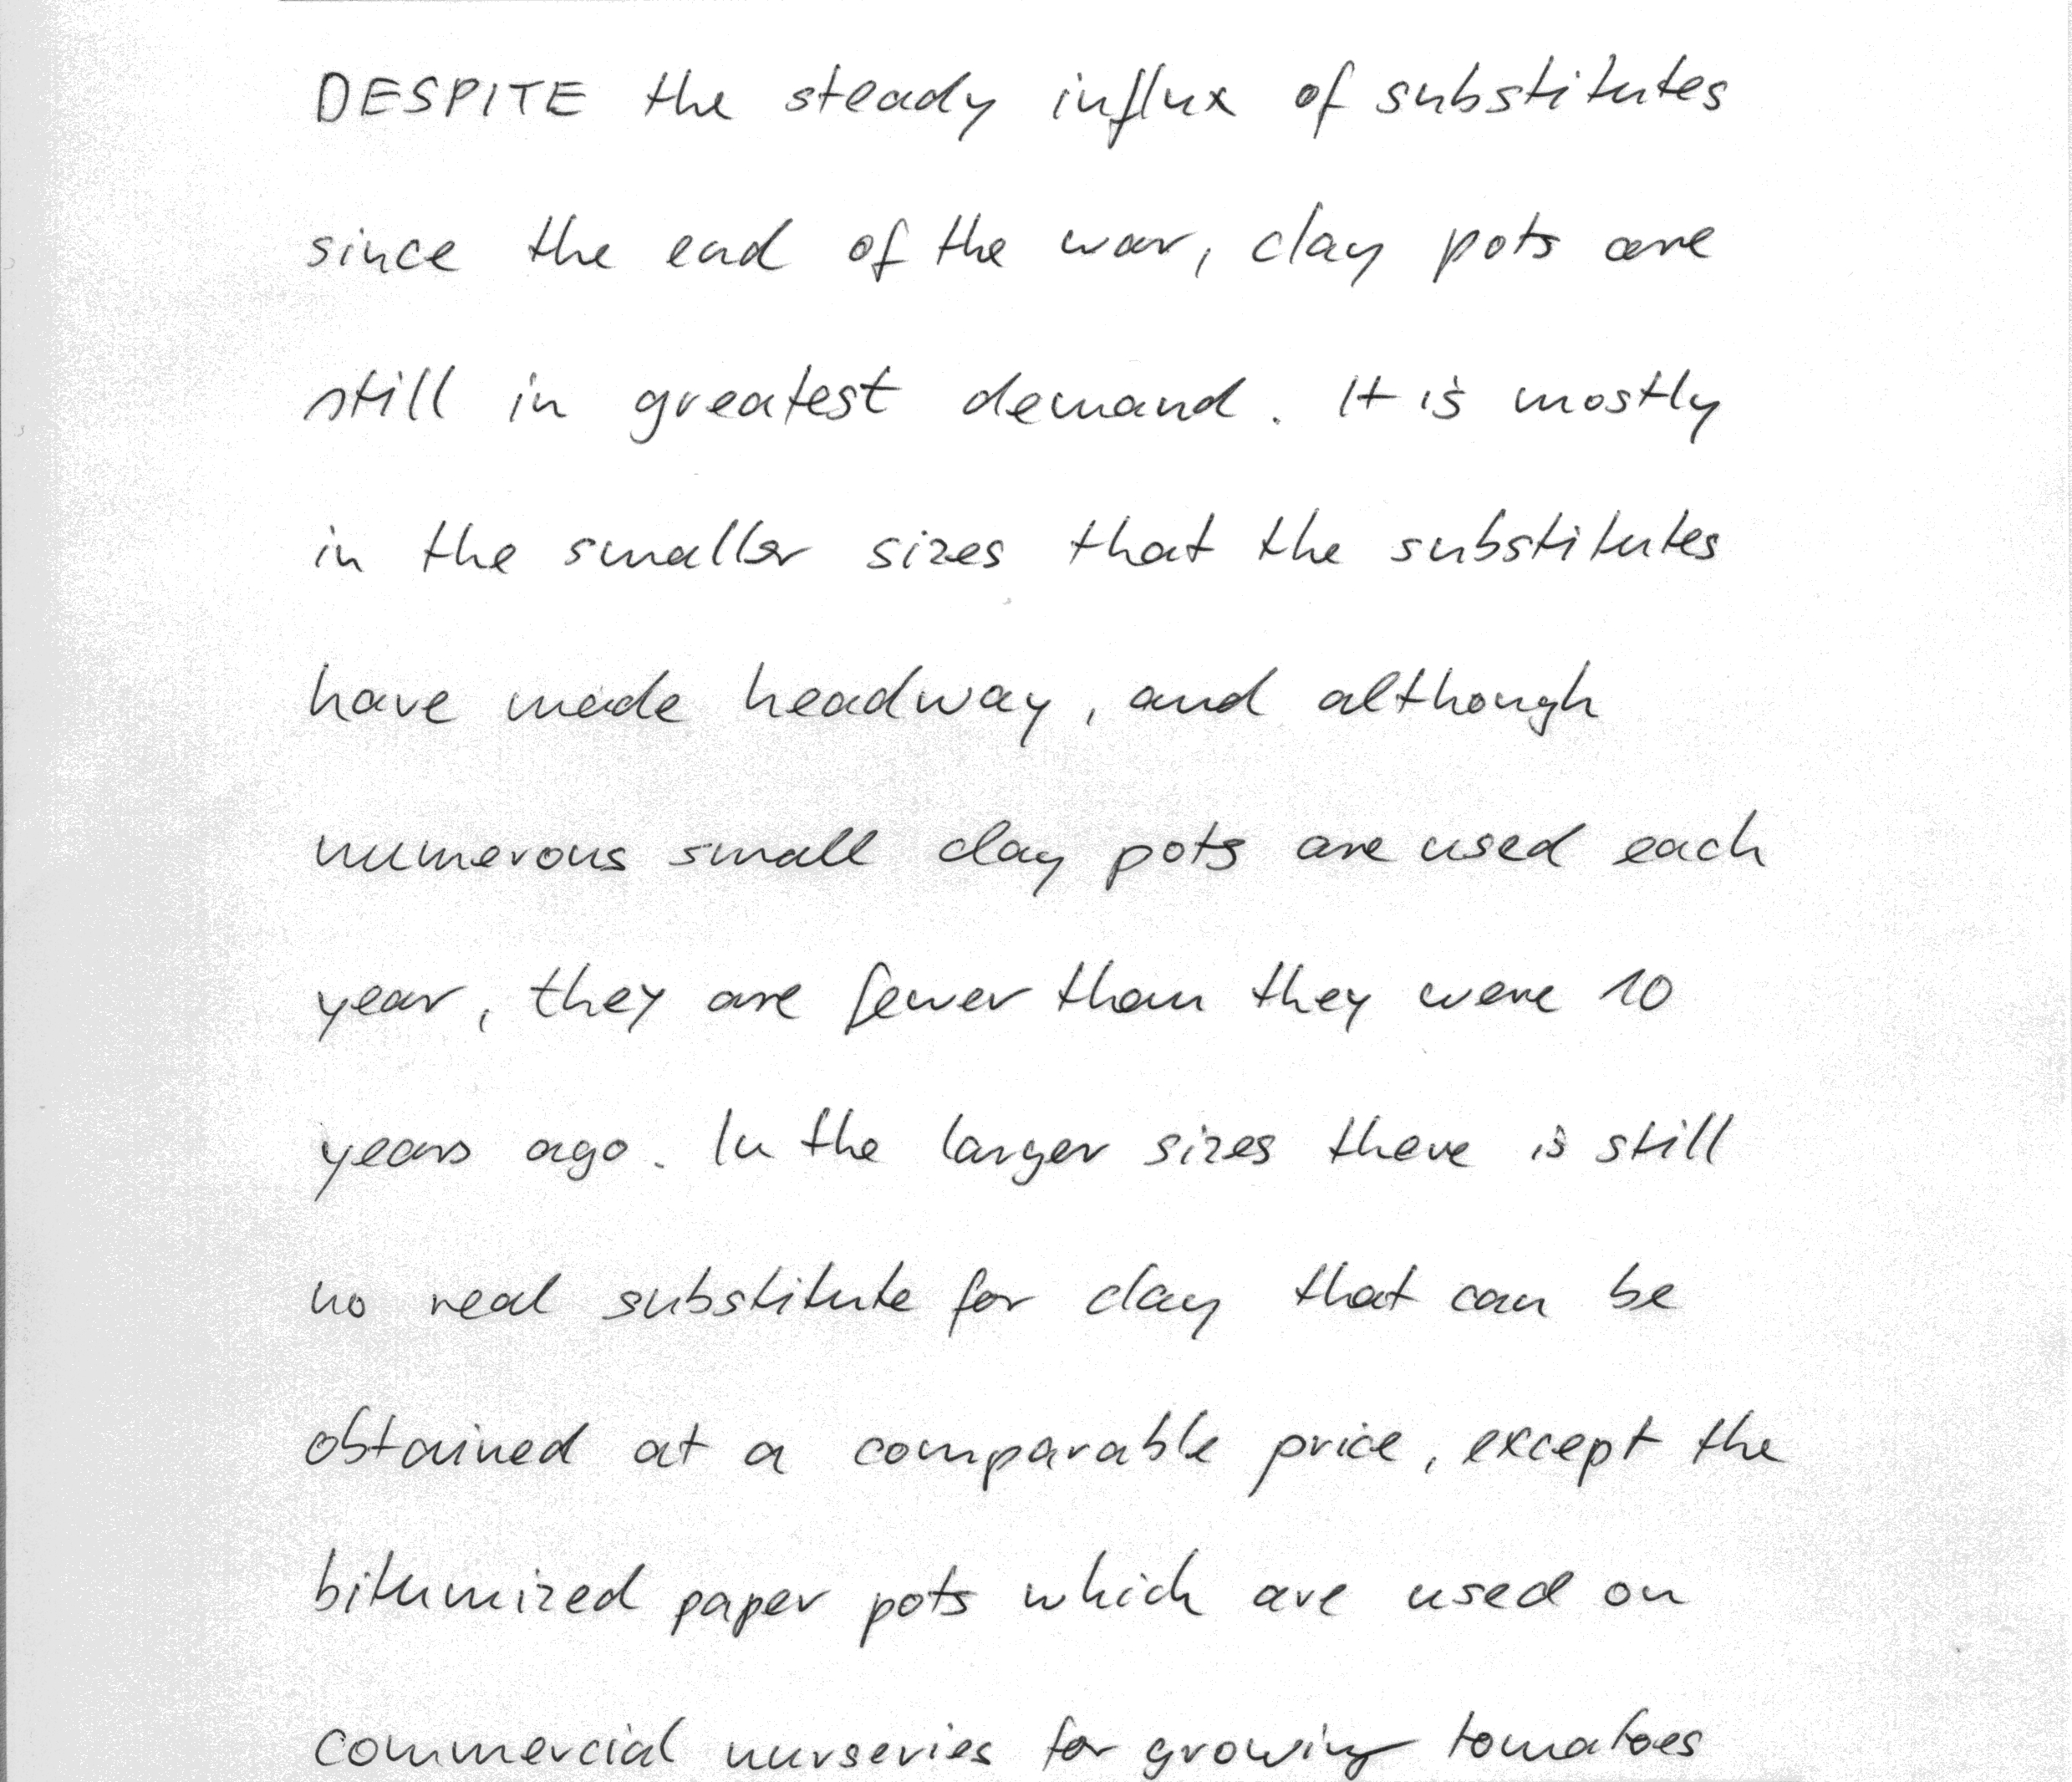 DESPITE the steady influx of substitutes
since the end of the war, clay pots are
still in greatest demand. It is mostly
in the smaller sizes that the substitutes
have made headway, and although
numerous small clay pots are used each
year, they are fewer than they were 10
years ago. In the larger sizes there is still
no real substitute for clay that can be
obtained at a comparable price, except the
bitumized paper pots which are used on
commercial nurseries for growing tomatoes